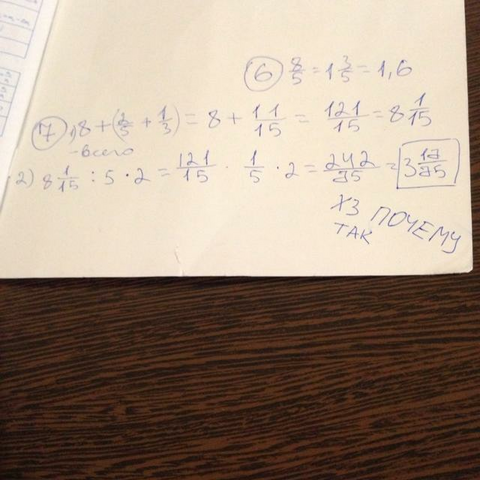 6 8/5 = 1 3/5 = 1,6
7 1) 8 + (2/5 + 1/3) = 8 + 11/15 = 121/15 = 8 1/15
- всего
2) 8 1/15 : 5 · 2 = 121/15 · 1/5 · 2 = 242/75 = 3 17/75
ХЗ ПОЧЕМУ
ТАК